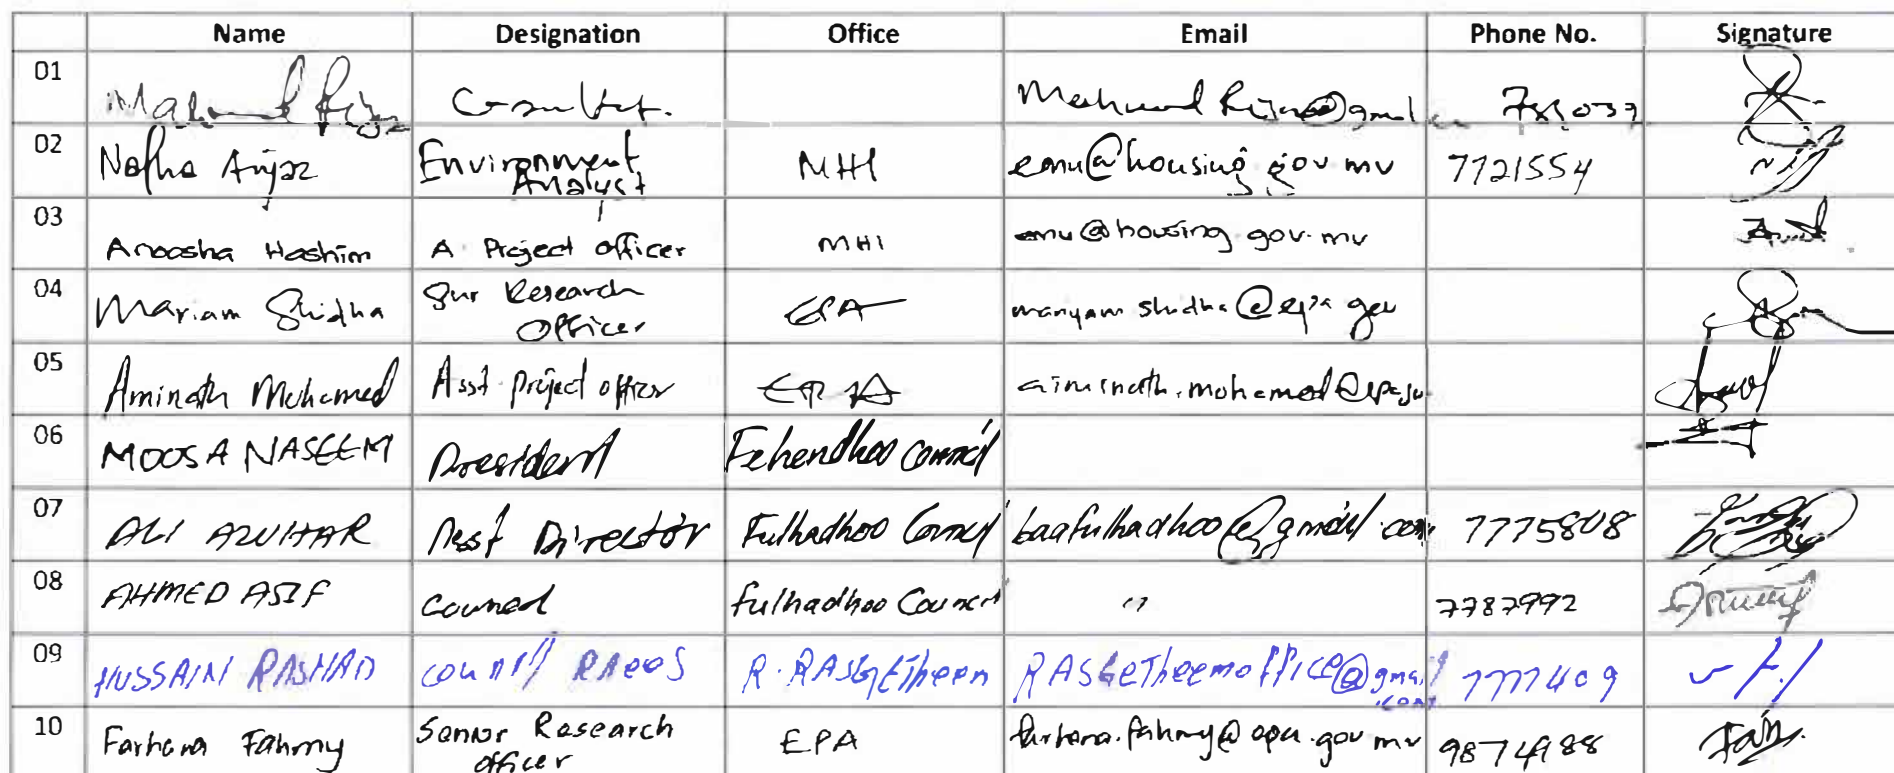 Name Designation Office Email Phone No. Signature
01
02 Environment Analyst MHI emu@housing.gov.mv 7721554
03 Anoosha Hashim A Project officer MHI emu@housing.gov.mv
04 Mariam Shidha Snr Research Officer EPA
05 Aminath Mohamed Asst project officer EPA
06 MOOSA NASEEM President Fehendhoo Council
07 ALI AZUHAR Asst Director Fulhadhoo Council baafulhadhoo@gmail.com 7775808
08 AHMED ASIF Council Fulhadhoo Council " 7787992
09 HUSSAIN RASHAD council RAEES R. RASGEtheem RASGETheemoffice@gmail.com 7771409
10 Farhana Fahmy Senior Research officer EPA farhana.fahmy@epa.gov.mv 9874188